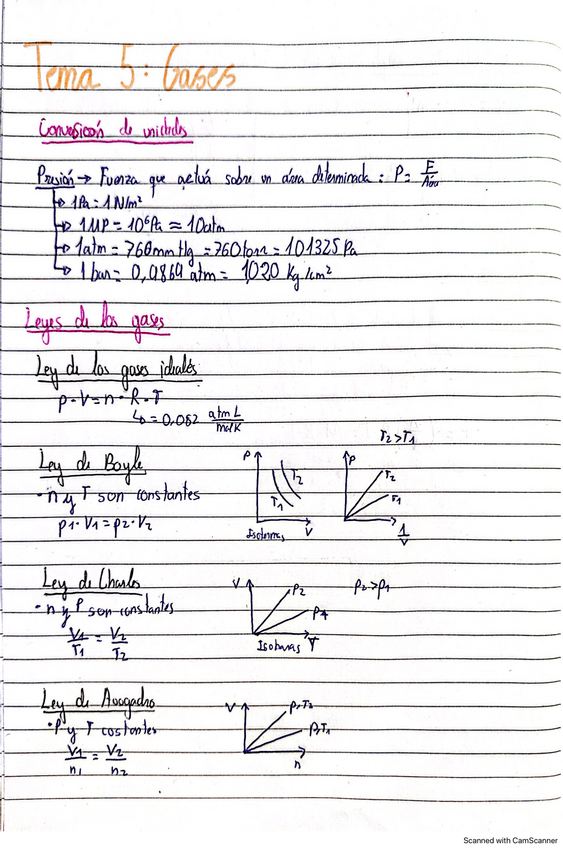 Tema 5: Gases
Conversión de unidades
Presión → Fuerza que actúa sobre un área determinada: P = F/Área
↳ 1Pa = 1N/m²
↳ 1MP = 10⁶Pa ≈ 10atm
↳ 1atm = 760mmHg = 760torr = 101325 Pa
↳ 1 bar = 0,9869 atm = 1020 Kg/cm²
Leyes de los gases
Ley de los gases ideales
p·V = n·R·T
↳ = 0,082 atm L / mol K
T2 > T1
Ley de Boyle
· n y T son constantes
p1·V1 = p2·V2
P T2 T1 V Isotermas
P T2 T1 1/V
Ley de Charles
· n y P son constantes
V1/T1 = V2/T2
V P2 P1 T Isobaras
P2 > P1
Ley de Avogadro
· P y T costantes
V1/n1 = V2/n2
V P,T2 P,T1 n
Scanned with CamScanner